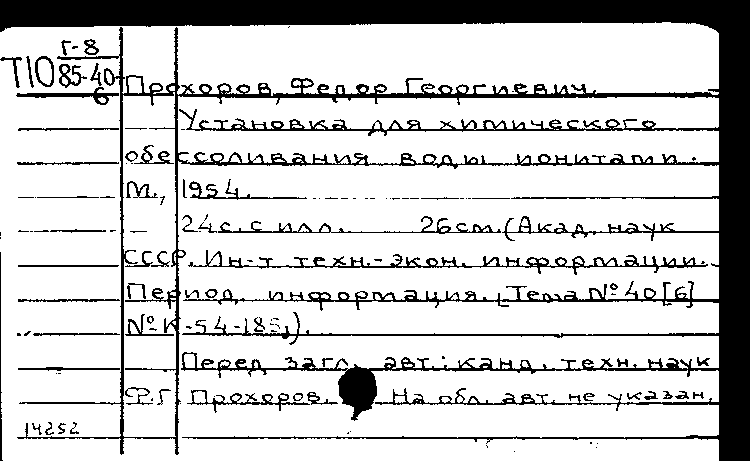 Г-8
Т10 85-40
6
Прохоров, Федор Георгиевич.
Установка для химического
обессоливания воды ионитами.
М., 1954.
24с. с илл. 26см. (Акад. наук
СССР. Ин-т техн.-экон. информации.
Период. информация. [Тема № 40[6]
№ К-54-185,).
Перед загл. авт.: канд. техн. наук
Ф.Г. Прохоров. На обл. авт. не указан.
14252